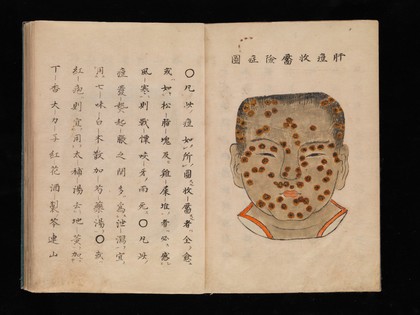 肝痘收靨險症圖
〇凡此痘如所圖收靨者全愈
或如松脂塊及雞屎堆者必感
風寒則戰慄咬牙而死〇凡此
痘起脹之間多爲泄瀉宜
用七味白朮散加芍藥湯〇或
紅則宜用大補湯去地黃加
大力子紅花酒製芩連山